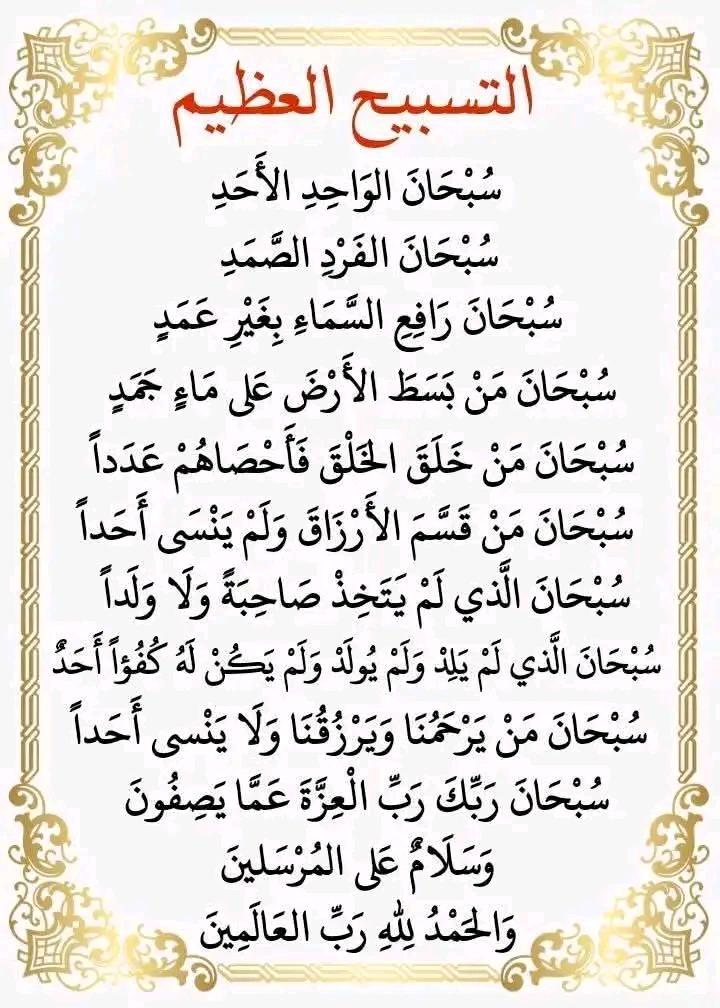 التسبيح العظيم
سُبْحَانَ الوَاحِدِ الأَحَدِ
سُبْحَانَ الفَرْدِ الصَّمَدِ
سُبْحَانَ رَافِعِ السَّمَاءِ بِغَيْرِ عَمَدٍ
سُبْحَانَ مَنْ بَسَطَ الأَرْضَ عَلى مَاءٍ جَمَدٍ
سُبْحَانَ مَنْ خَلَقَ الخَلْقَ فَأَحْصَاهُمْ عَدَداً
سُبْحَانَ مَنْ قَسَّمَ الأَرْزَاقَ وَلَمْ يَنْسَى أَحَداً
سُبْحَانَ الَّذي لَمْ يَتَخِذْ صَاحِبَةً وَلَا وَلَداً
سُبْحَانَ الَّذي لَمْ يَلِدْ وَلَمْ يُولَدْ وَلَمْ يَكُنْ لَهُ كُفُؤاً أَحَدٌ
سُبْحَانَ مَنْ يَرْحَمُنَا وَيَرْزُقُنَا وَلَا يَنْسى أَحَداً
سُبْحَانَ رَبِّكَ رَبِّ الْعِزَّةَ عَمَّا يَصِفُونَ
وَسَلَامٌ عَلى المُرْسَلينَ
وَالحَمْدُ لِلهِ رَبِّ العَالَمِينَ